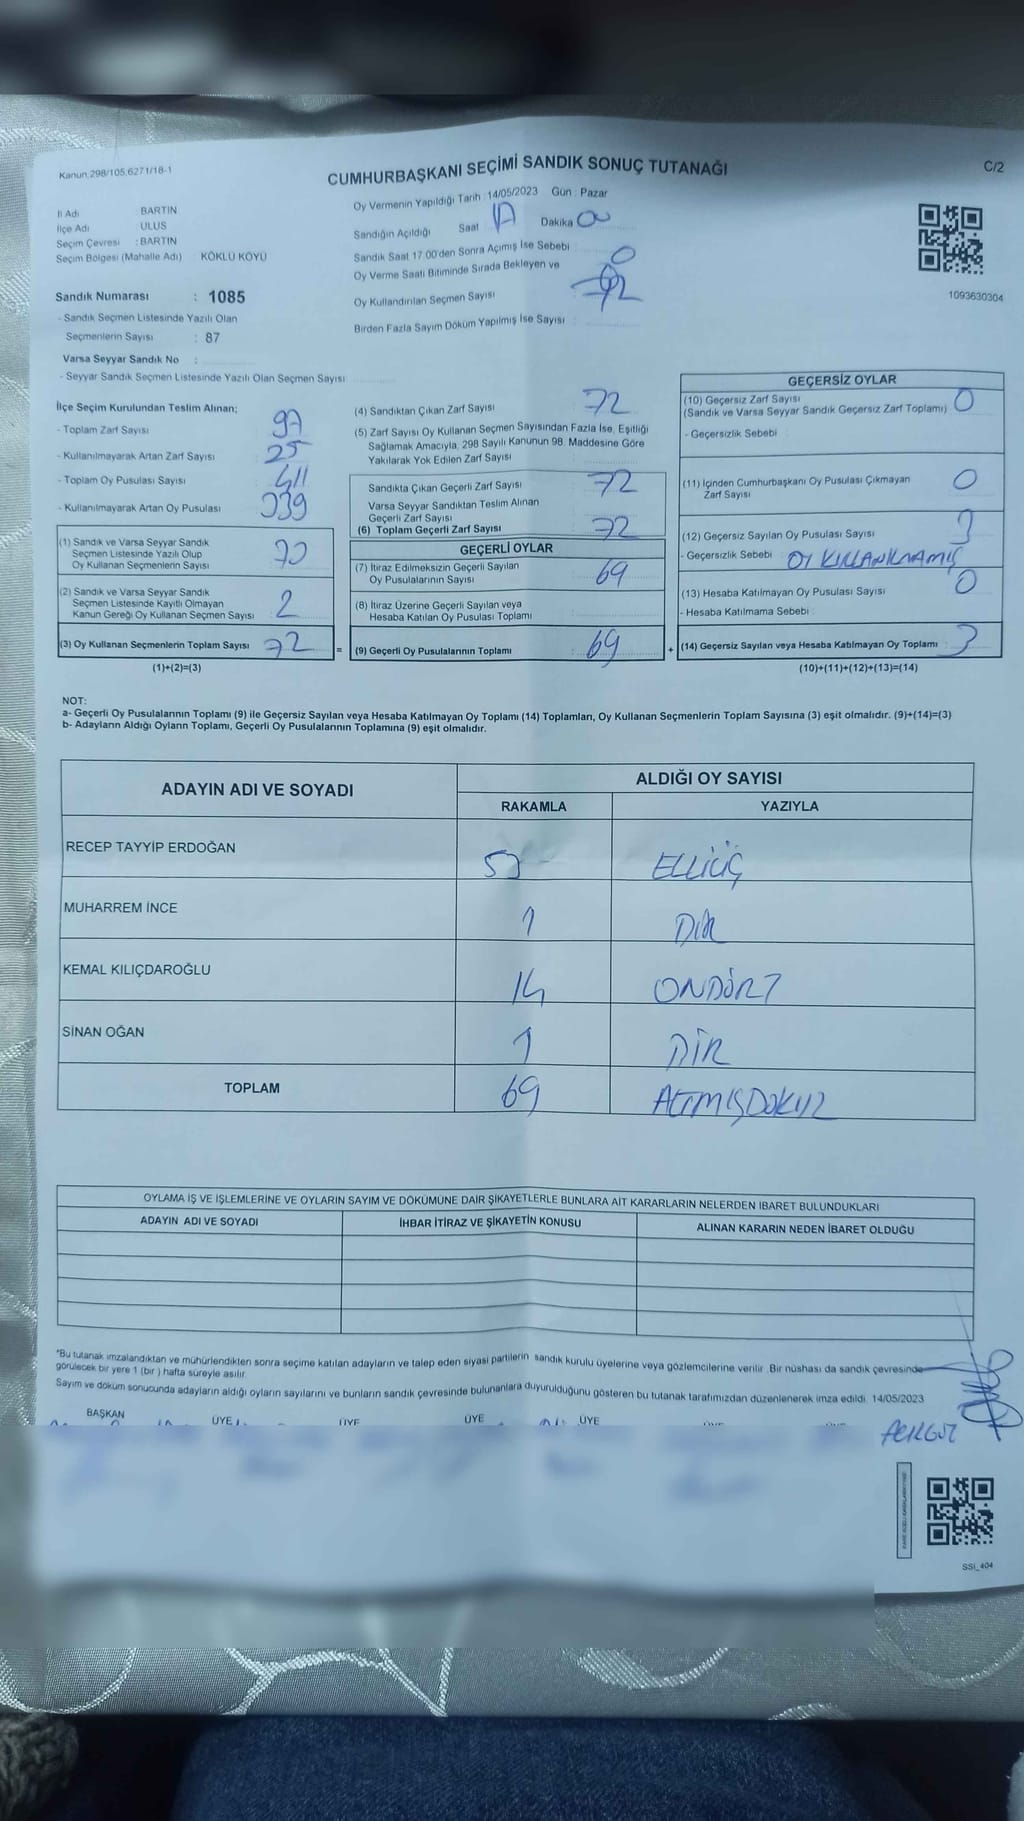 Kanun.298/105,6271/18-1
CUMHURBAŞKANI SEÇİMİ SANDIK SONUÇ TUTANAĞI
C/2
Oy Vermenin Yapıldığı Tarih : 14/05/2023 Gün : Pazar
İl Adı BARTIN
İlçe Adı ULUS
Seçim Çevresi : BARTIN
Seçim Bölgesi (Mahalle Adı) KÖKLÜ KÖYÜ
Sandığın Açıldığı Saat Dakika
Sandık Saat 17:00'den Sonra Açımış İse Sebebi 0
Oy Verme Saati Bitiminde Sırada Bekleyen ve
Oy Kullandırılan Seçmen Sayısı
Birden Fazla Sayım Döküm Yapılmış İse Sayısı
1093630304
Sandık Numarası : 1085
- Sandık Seçmen Listesinde Yazılı Olan
Seçmenlerin Sayısı : 87
Varsa Seyyar Sandık No :
- Seyyar Sandık Seçmen Listesinde Yazılı Olan Seçmen Sayısı
İlçe Seçim Kurulundan Teslim Alınan;
- Toplam Zarf Sayısı 97
- Kullanılmayarak Artan Zarf Sayısı 25
- Toplam Oy Pusulası Sayısı 411
- Kullanılmayarak Artan Oy Pusulası 339
(1) Sandık ve Varsa Seyyar Sandık
Seçmen Listesinde Yazılı Olup
Oy Kullanan Seçmenlerin Sayısı 70
(2) Sandık ve Varsa Seyyar Sandık
Seçmen Listesinde Kayıtlı Olmayan
Kanun Gereği Oy Kullanan Seçmen Sayısı 2
(3) Oy Kullanan Seçmenlerin Toplam Sayısı 72
(1)+(2)=(3)
=
(4) Sandıktan Çıkan Zarf Sayısı 72
(5) Zarf Sayısı Oy Kullanan Seçmen Sayısından Fazla İse, Eşitliği
Sağlamak Amacıyla, 298 Sayılı Kanunun 98. Maddesine Göre
Yakılarak Yok Edilen Zarf Sayısı
Sandıkta Çıkan Geçerli Zarf Sayısı 72
Varsa Seyyar Sandıktan Teslim Alınan
Geçerli Zarf Sayısı
(6) Toplam Geçerli Zarf Sayısı 72
GEÇERLİ OYLAR
(7) İtiraz Edilmeksizin Geçerli Sayılan
Oy Pusulalarının Sayısı 69
(8) İtiraz Üzerine Geçerli Sayılan veya
Hesaba Katılan Oy Pusulası Toplamı
(9) Geçerli Oy Pusulalarının Toplamı : 69
+
GEÇERSİZ OYLAR
(10) Geçersiz Zarf Sayısı 0
(Sandık ve Varsa Seyyar Sandık Geçersiz Zarf Toplamı)
- Geçersizlik Sebebi :
(11) İçinden Cumhurbaşkanı Oy Pusulası Çıkmayan 0
Zarf Sayısı
(12) Geçersiz Sayılan Oy Pusulası Sayısı 3
- Geçersizlik Sebebi : OY KULLANILMAMIŞ
(13) Hesaba Katılmayan Oy Pusulası Sayısı 0
- Hesaba Katılmama Sebebi :
(14) Geçersiz Sayılan veya Hesaba Katılmayan Oy Toplamı : 3
(10)+(11)+(12)+(13)=(14)
NOT:
a- Geçerli Oy Pusulalarının Toplamı (9) ile Geçersiz Sayılan veya Hesaba Katılmayan Oy Toplamı (14) Toplamları, Oy Kullanan Seçmenlerin Toplam Sayısına (3) eşit olmalıdır. (9)+(14)=(3)
b- Adayların Aldığı Oyların Toplamı, Geçerli Oy Pusulalarının Toplamına (9) eşit olmalıdır.
ADAYIN ADI VE SOYADI
ALDIĞI OY SAYISI
RAKAMLA YAZIYLA
RECEP TAYYİP ERDOĞAN 53 ELLİÜÇ
MUHARREM İNCE 1 BİR
KEMAL KILIÇDAROĞLU 14 ONDÖRT
SİNAN OĞAN 1 BİR
TOPLAM 69 ALTMIŞDOKUZ
OYLAMA İŞ VE İŞLEMLERİNE VE OYLARIN SAYIM VE DÖKÜMÜNE DAİR ŞİKAYETLERLE BUNLARA AİT KARARLARIN NELERDEN İBARET BULUNDUKLARI
ADAYIN ADI VE SOYADI İHBAR İTİRAZ VE ŞİKAYETİN KONUSU ALINAN KARARIN NEDEN İBARET OLDUĞU
*Bu tutanak imzalandıktan ve mühürlendikten sonra seçime katılan adayların ve talep eden siyasi partilerin sandık kurulu üyelerine veya gözlemcilerine verilir. Bir nüshası da sandık çevresinde
görülecek bir yere 1 (bir) hafta süreyle asılır.
Sayım ve döküm sonucunda adayların aldığı oyların sayılarını ve bunların sandık çevresinde bulunanlara duyurulduğunu gösteren bu tutanak tarafımızdan düzenlenerek imza edildi. 14/05/2023
BAŞKAN ÜYE ÜYE ÜYE ÜYE
SSİ_404